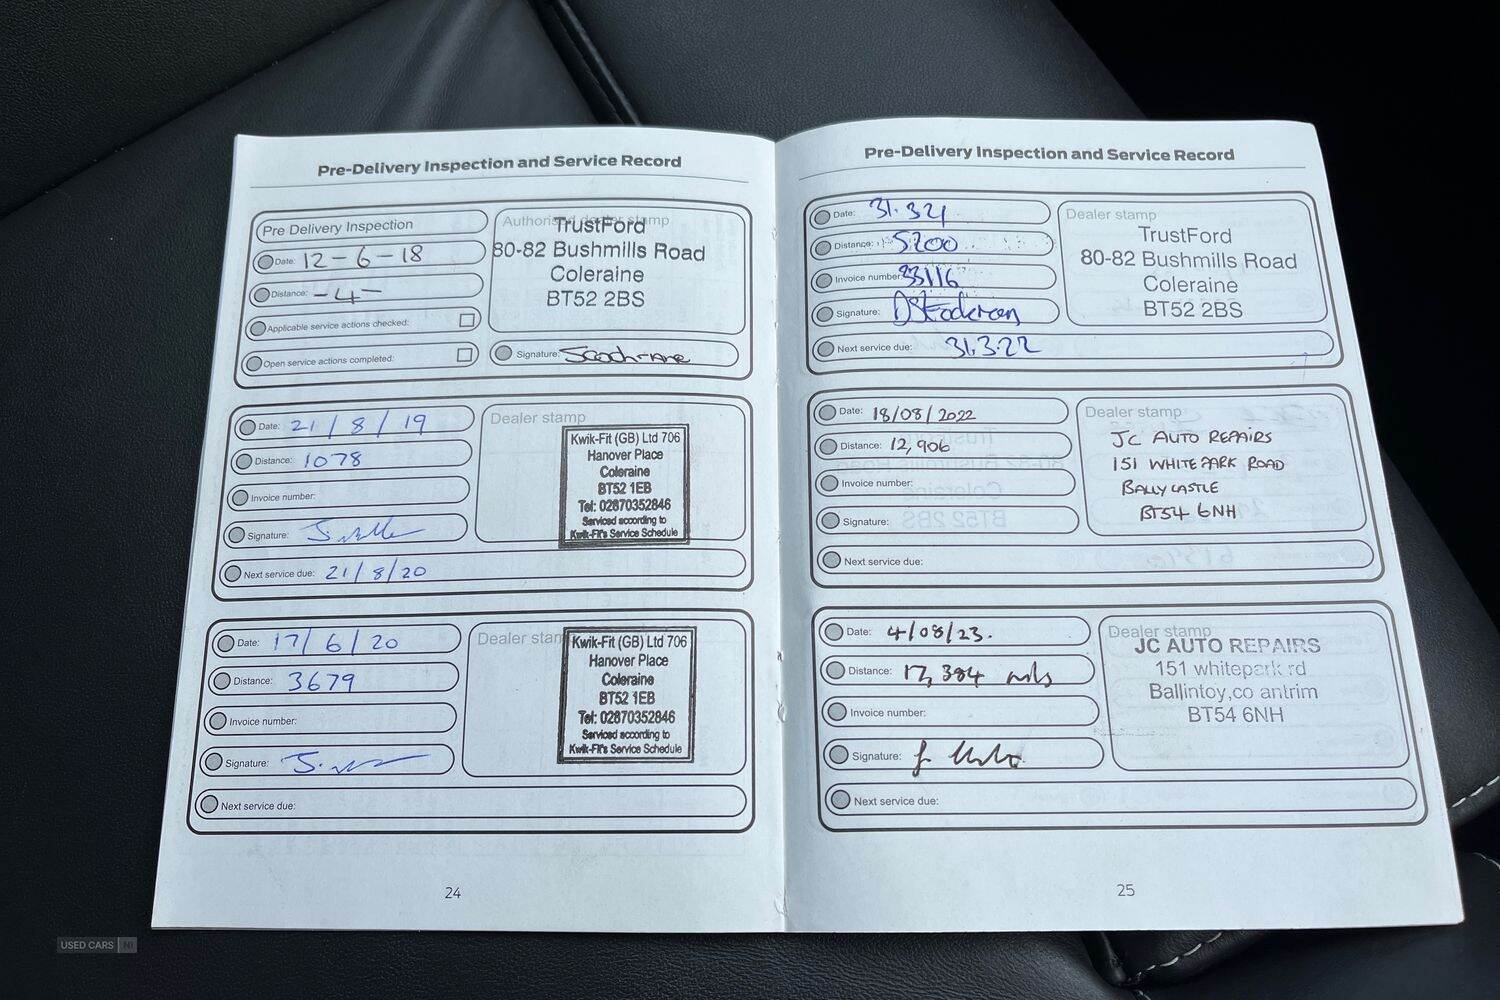 Pre-Delivery Inspection and Service Record
Pre Delivery Inspection
Date: 12-6-18
Distance: -4-
Applicable service actions checked:
Open service actions completed:
Authorised dealer stamp
TrustFord
80-82 Bushmills Road
Coleraine
BT52 2BS
Signature:
Date: 21/8/19
Distance: 1078
Invoice number:
Signature:
Next service due: 21/8/20
Dealer stamp
Kwik-Fit (GB) Ltd 706
Hanover Place
Coleraine
BT52 1EB
Tel: 02870352846
Serviced according to
Kwik-Fit's Service Schedule
Date: 17/6/20
Distance: 3679
Invoice number:
Signature:
Next service due:
Dealer stamp
Kwik-Fit (GB) Ltd 706
Hanover Place
Coleraine
BT52 1EB
Tel: 02870352846
Serviced according to
Kwik-Fit's Service Schedule
24
Pre-Delivery Inspection and Service Record
Date: 31.3.21
Distance: 5200
Invoice number: 33116
Signature:
Next service due: 31.3.22
Dealer stamp
TrustFord
80-82 Bushmills Road
Coleraine
BT52 2BS
Date: 18/08/2022
Distance: 12,906
Invoice number:
Signature:
Next service due:
Dealer stamp
JC AUTO REPAIRS
151 WHITEPARK ROAD
BALLYCASTLE
BT54 6NH
Date: 4/08/23.
Distance: 17,384 mls
Invoice number:
Signature:
Next service due:
Dealer stamp
JC AUTO REPAIRS
151 whitepark rd
Ballintoy,co antrim
BT54 6NH
25
USED CARS NI